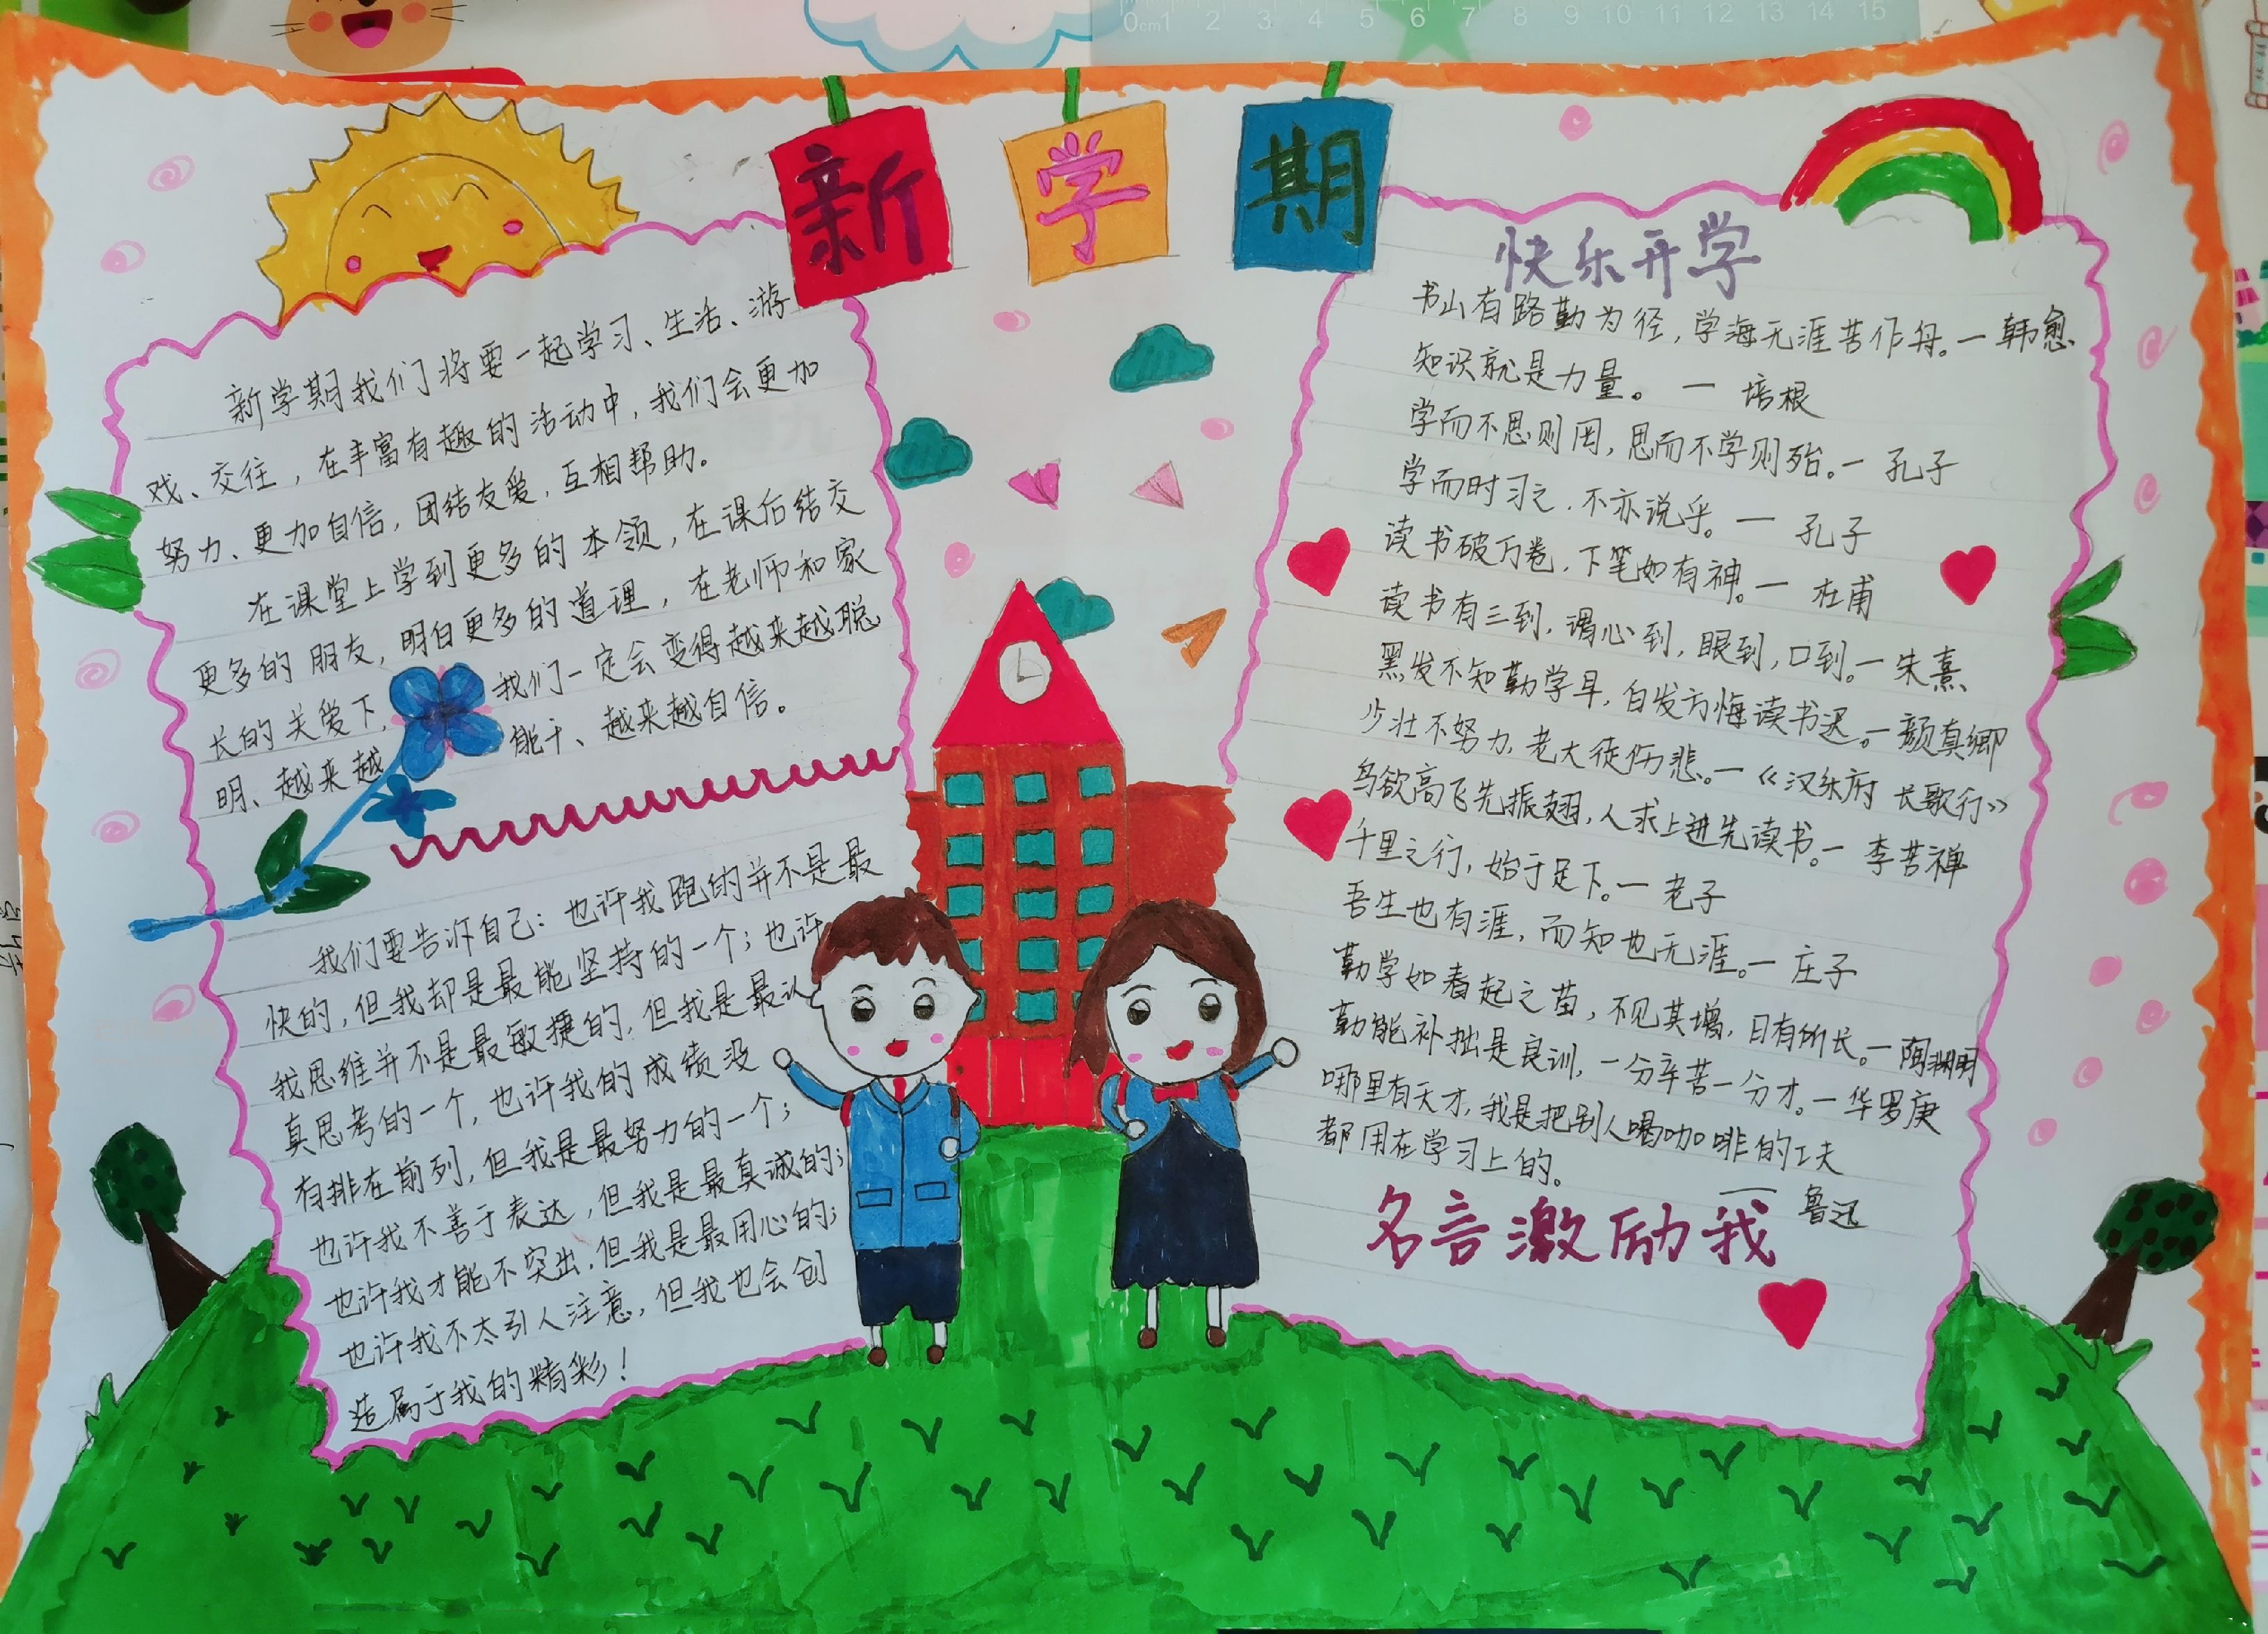 0cm 1 2 3 4 5 6 7 8 9 10 11 12 13 14 15
新学期
新学期我们将要一起学习、生活、游
戏、交往，在丰富有趣的活动中，我们会更加
努力、更加自信，团结友爱，互相帮助。
在课堂上学到更多的本领，在课后结交
更多的朋友，明白更多的道理，在老师和家
长的关爱下，我们一定会变得越来越聪
明、越来越能干、越来越自信。
我们要告诉自己：也许我跑的并不是最
快的，但我却是最能坚持的一个；也许
我思维并不是最敏捷的，但我是最认
真思考的一个，也许我的成绩没
有排在前列，但我是最努力的一个；
也许我不善于表达，但我是最真诚的；
也许我才能不突出，但我是最用心的；
也许我不太引人注意，但我也会创
造属于我的精彩！
快乐开学
书山有路勤为径，学海无涯苦作舟。一韩愈
知识就是力量。 一 培根
学而不思则罔，思而不学则殆。一 孔子
学而时习之，不亦说乎。一 孔子
读书破万卷，下笔如有神。一 杜甫
读书有三到，谓心到，眼到，口到。一朱熹
黑发不知勤学早，白发方悔读书迟。一颜真卿
少壮不努力，老大徒伤悲。一《汉乐府 长歌行》
鸟欲高飞先振翅，人求上进先读书。一 李苦禅
千里之行，始于足下。一 老子
吾生也有涯，而知也无涯。一 庄子
勤学如春起之苗，不见其增，日有所长。一陶渊明
勤能补拙是良训，一分辛苦一分才。一华罗庚
哪里有天才，我是把别人喝咖啡的工夫
都用在学习上的。
一 鲁迅
名言激励我